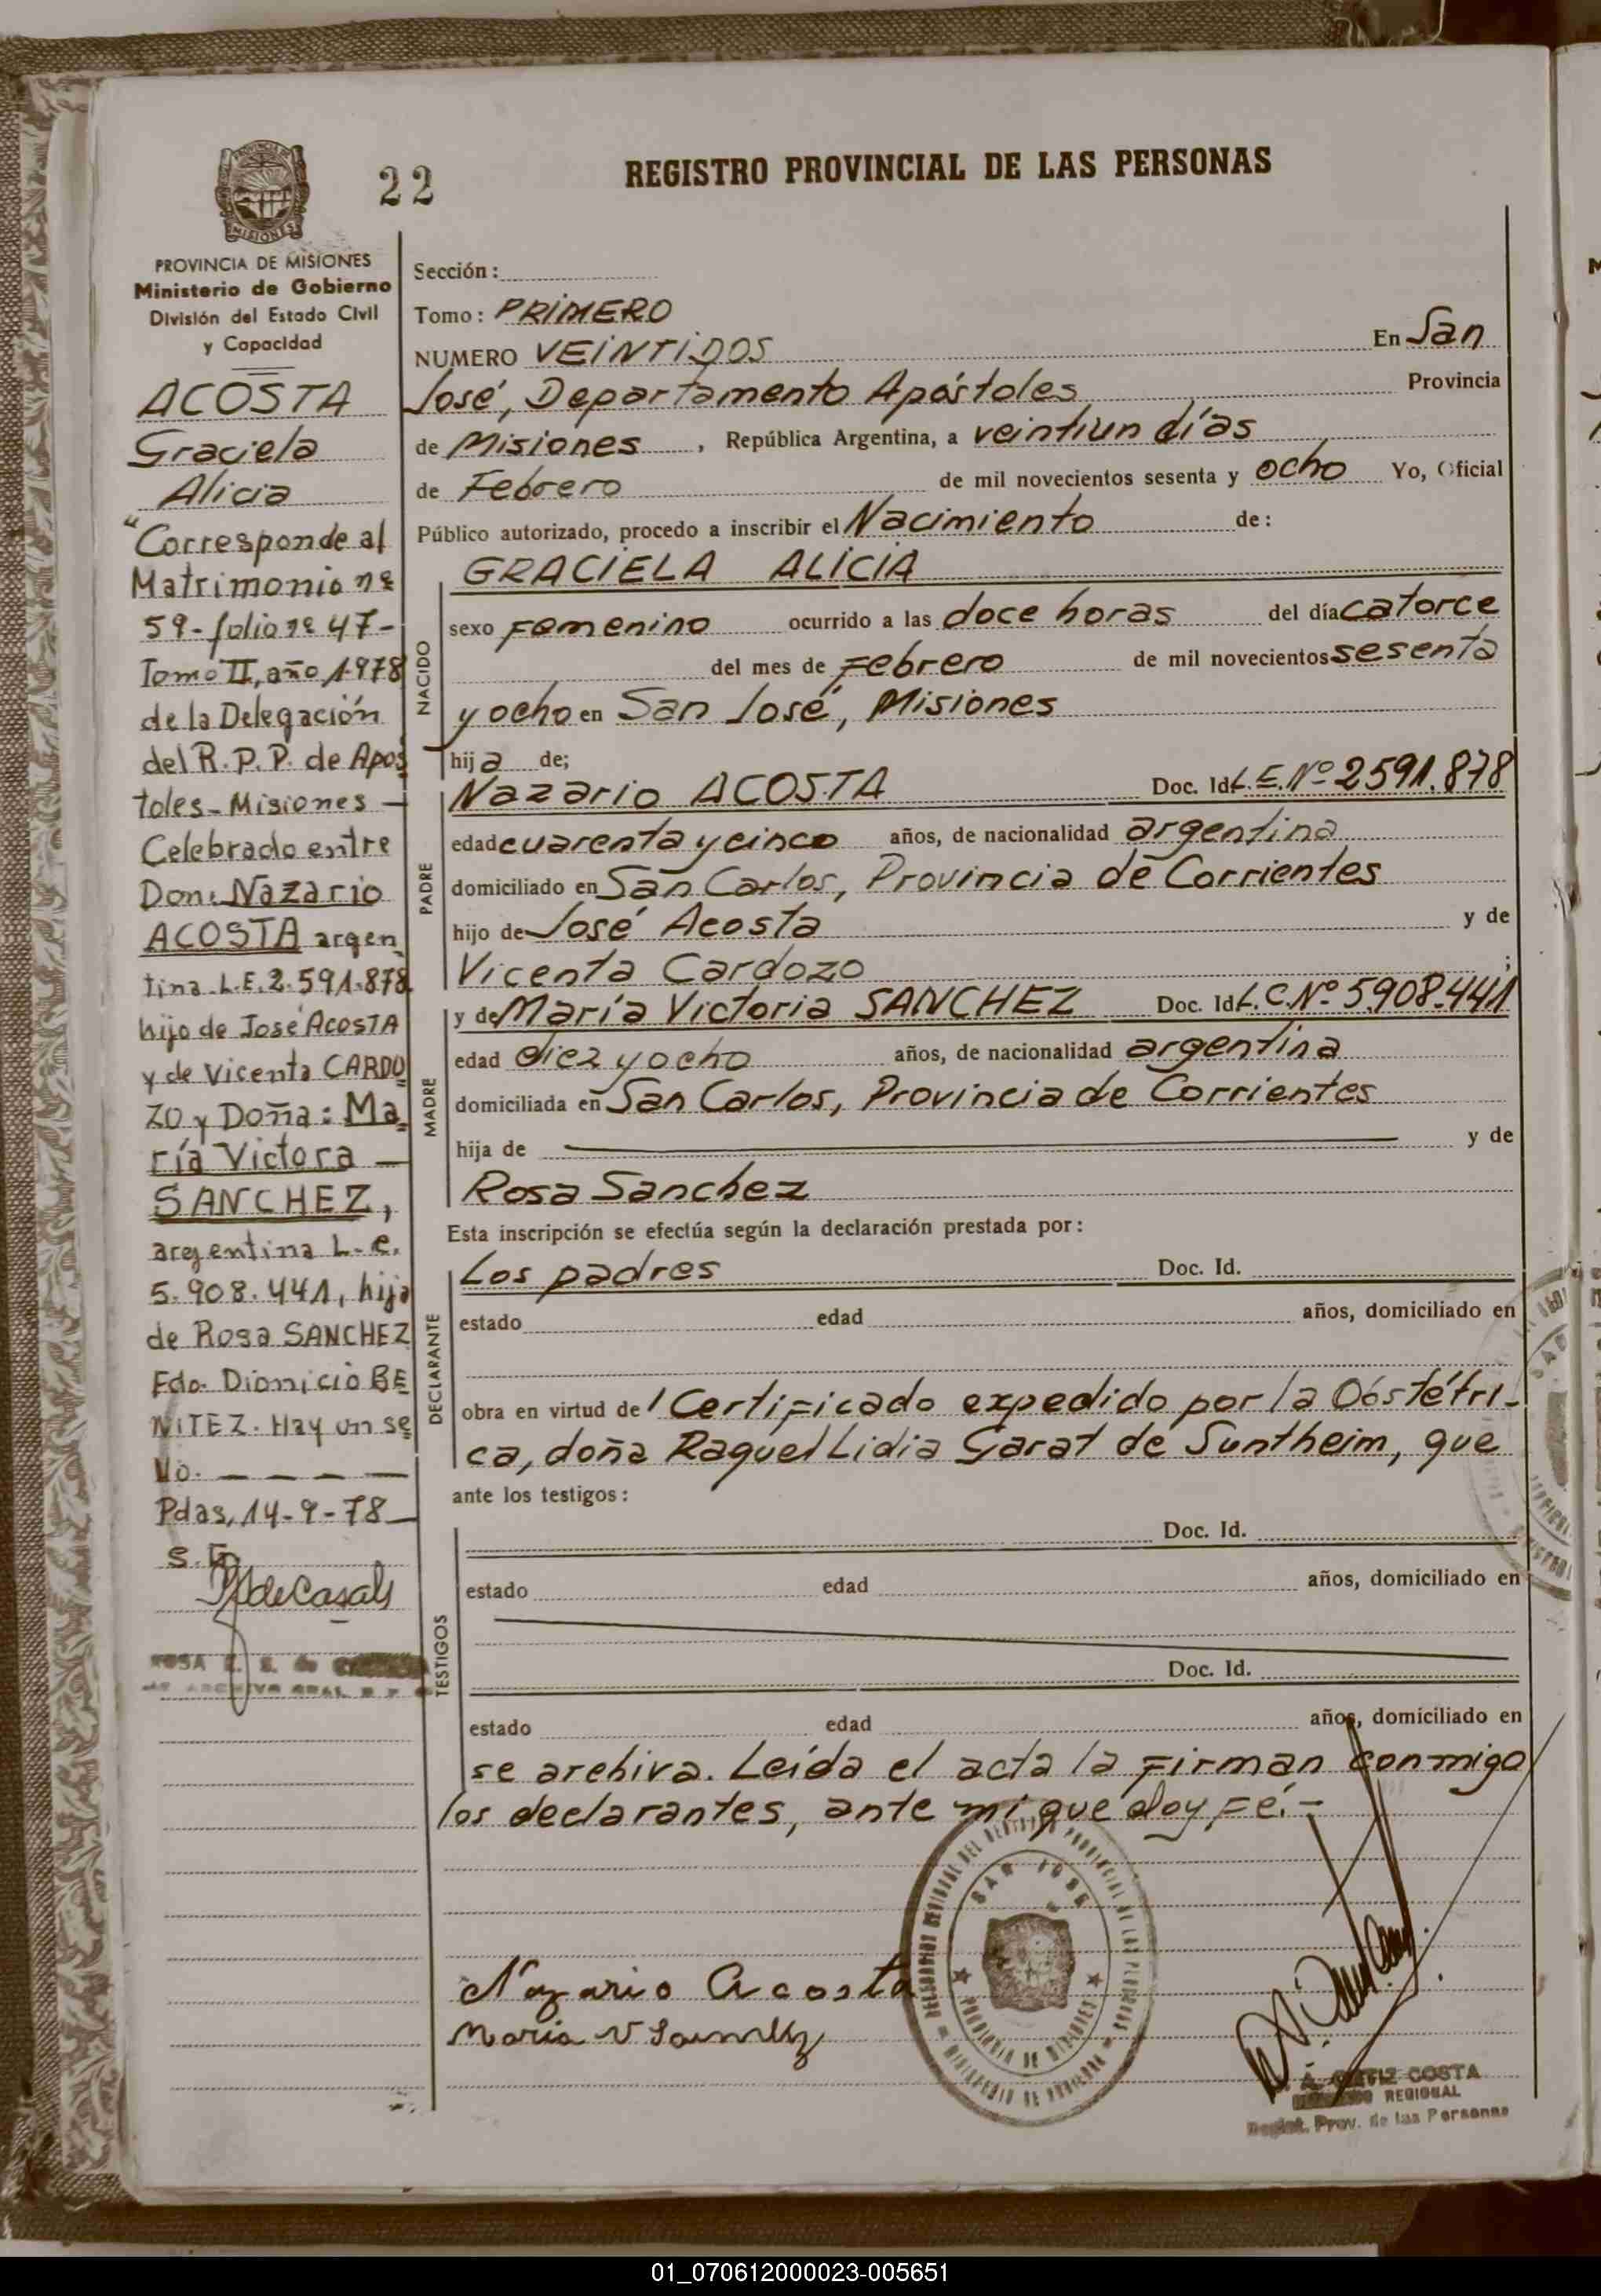 22
REGISTRO PROVINCIAL DE LAS PERSONAS
PROVINCIA DE MISIONES
Ministerio de Gobierno
División del Estado Civil
y Capacidad
ACOSTA
Graciela
Alicia
"Corresponde al
Matrimonio nº
59-folio nº 47-
Tomo II, año 1978
de la Delegación
del R.P.P. de Apos
toles-Misiones —
Celebrado entre
Don: Nazario
ACOSTA argen
tina L.E. 2.591.878
hijo de José ACOSTA
y de Vicenta CARDO
ZO y Doña: Ma
ría Victora —
SANCHEZ,
argentina L-C.
5.908.441, hija
de Rosa SANCHEZ
Fdo. Dionicio BE
NITEZ. Hay un se
llo. — — — —
Pdas, 14-9-78 —
Sección:
Tomo: PRIMERO
NUMERO VEINTIDOS En San
José, Departamento Apóstoles Provincia
de Misiones, República Argentina, a veintiun días
de Febrero de mil novecientos sesenta y ocho Yo, Oficial
Público autorizado, procedo a inscribir el Nacimiento de:
GRACIELA ALICIA
NACIDO
sexo Femenino ocurrido a las doce horas del día catorce
del mes de Febrero de mil novecientos sesenta
y ocho en San José, Misiones
hija de;
PADRE
Nazario ACOSTA Doc. Id L.E. Nº 2591.878
edad cuarenta y cinco años, de nacionalidad argentina
domiciliado en San Carlos, Provincia de Corrientes
hijo de José Acosta y de
Vicenta Cardozo ;
MADRE
y de María Victoria SANCHEZ Doc. Id L.C. Nº 5.908.441
edad diez y ocho años, de nacionalidad argentina
domiciliada en San Carlos, Provincia de Corrientes
hija de — y de
Rosa Sanchez
Esta inscripción se efectúa según la declaración prestada por:
DECLARANTE
Los padres Doc. Id.
estado edad años, domiciliado en
obra en virtud de l Certificado expedido por la Obstétri-
ca, doña Raquel Lidia Garat de Suntheim, que
ante los testigos:
TESTIGOS
Doc. Id.
estado edad años, domiciliado en
Doc. Id.
estado edad años, domiciliado en
se archiva. Leída el acta la firman conmigo
los declarantes, ante mí que doy fé.-
Nazario Acosta
Maria V Sanchez
SAN JOSE
PROVINCIA DE MISIONES
ORTIZ COSTA
REGIONAL
Regist. Prov. de las Personas
01_070612000023-005651